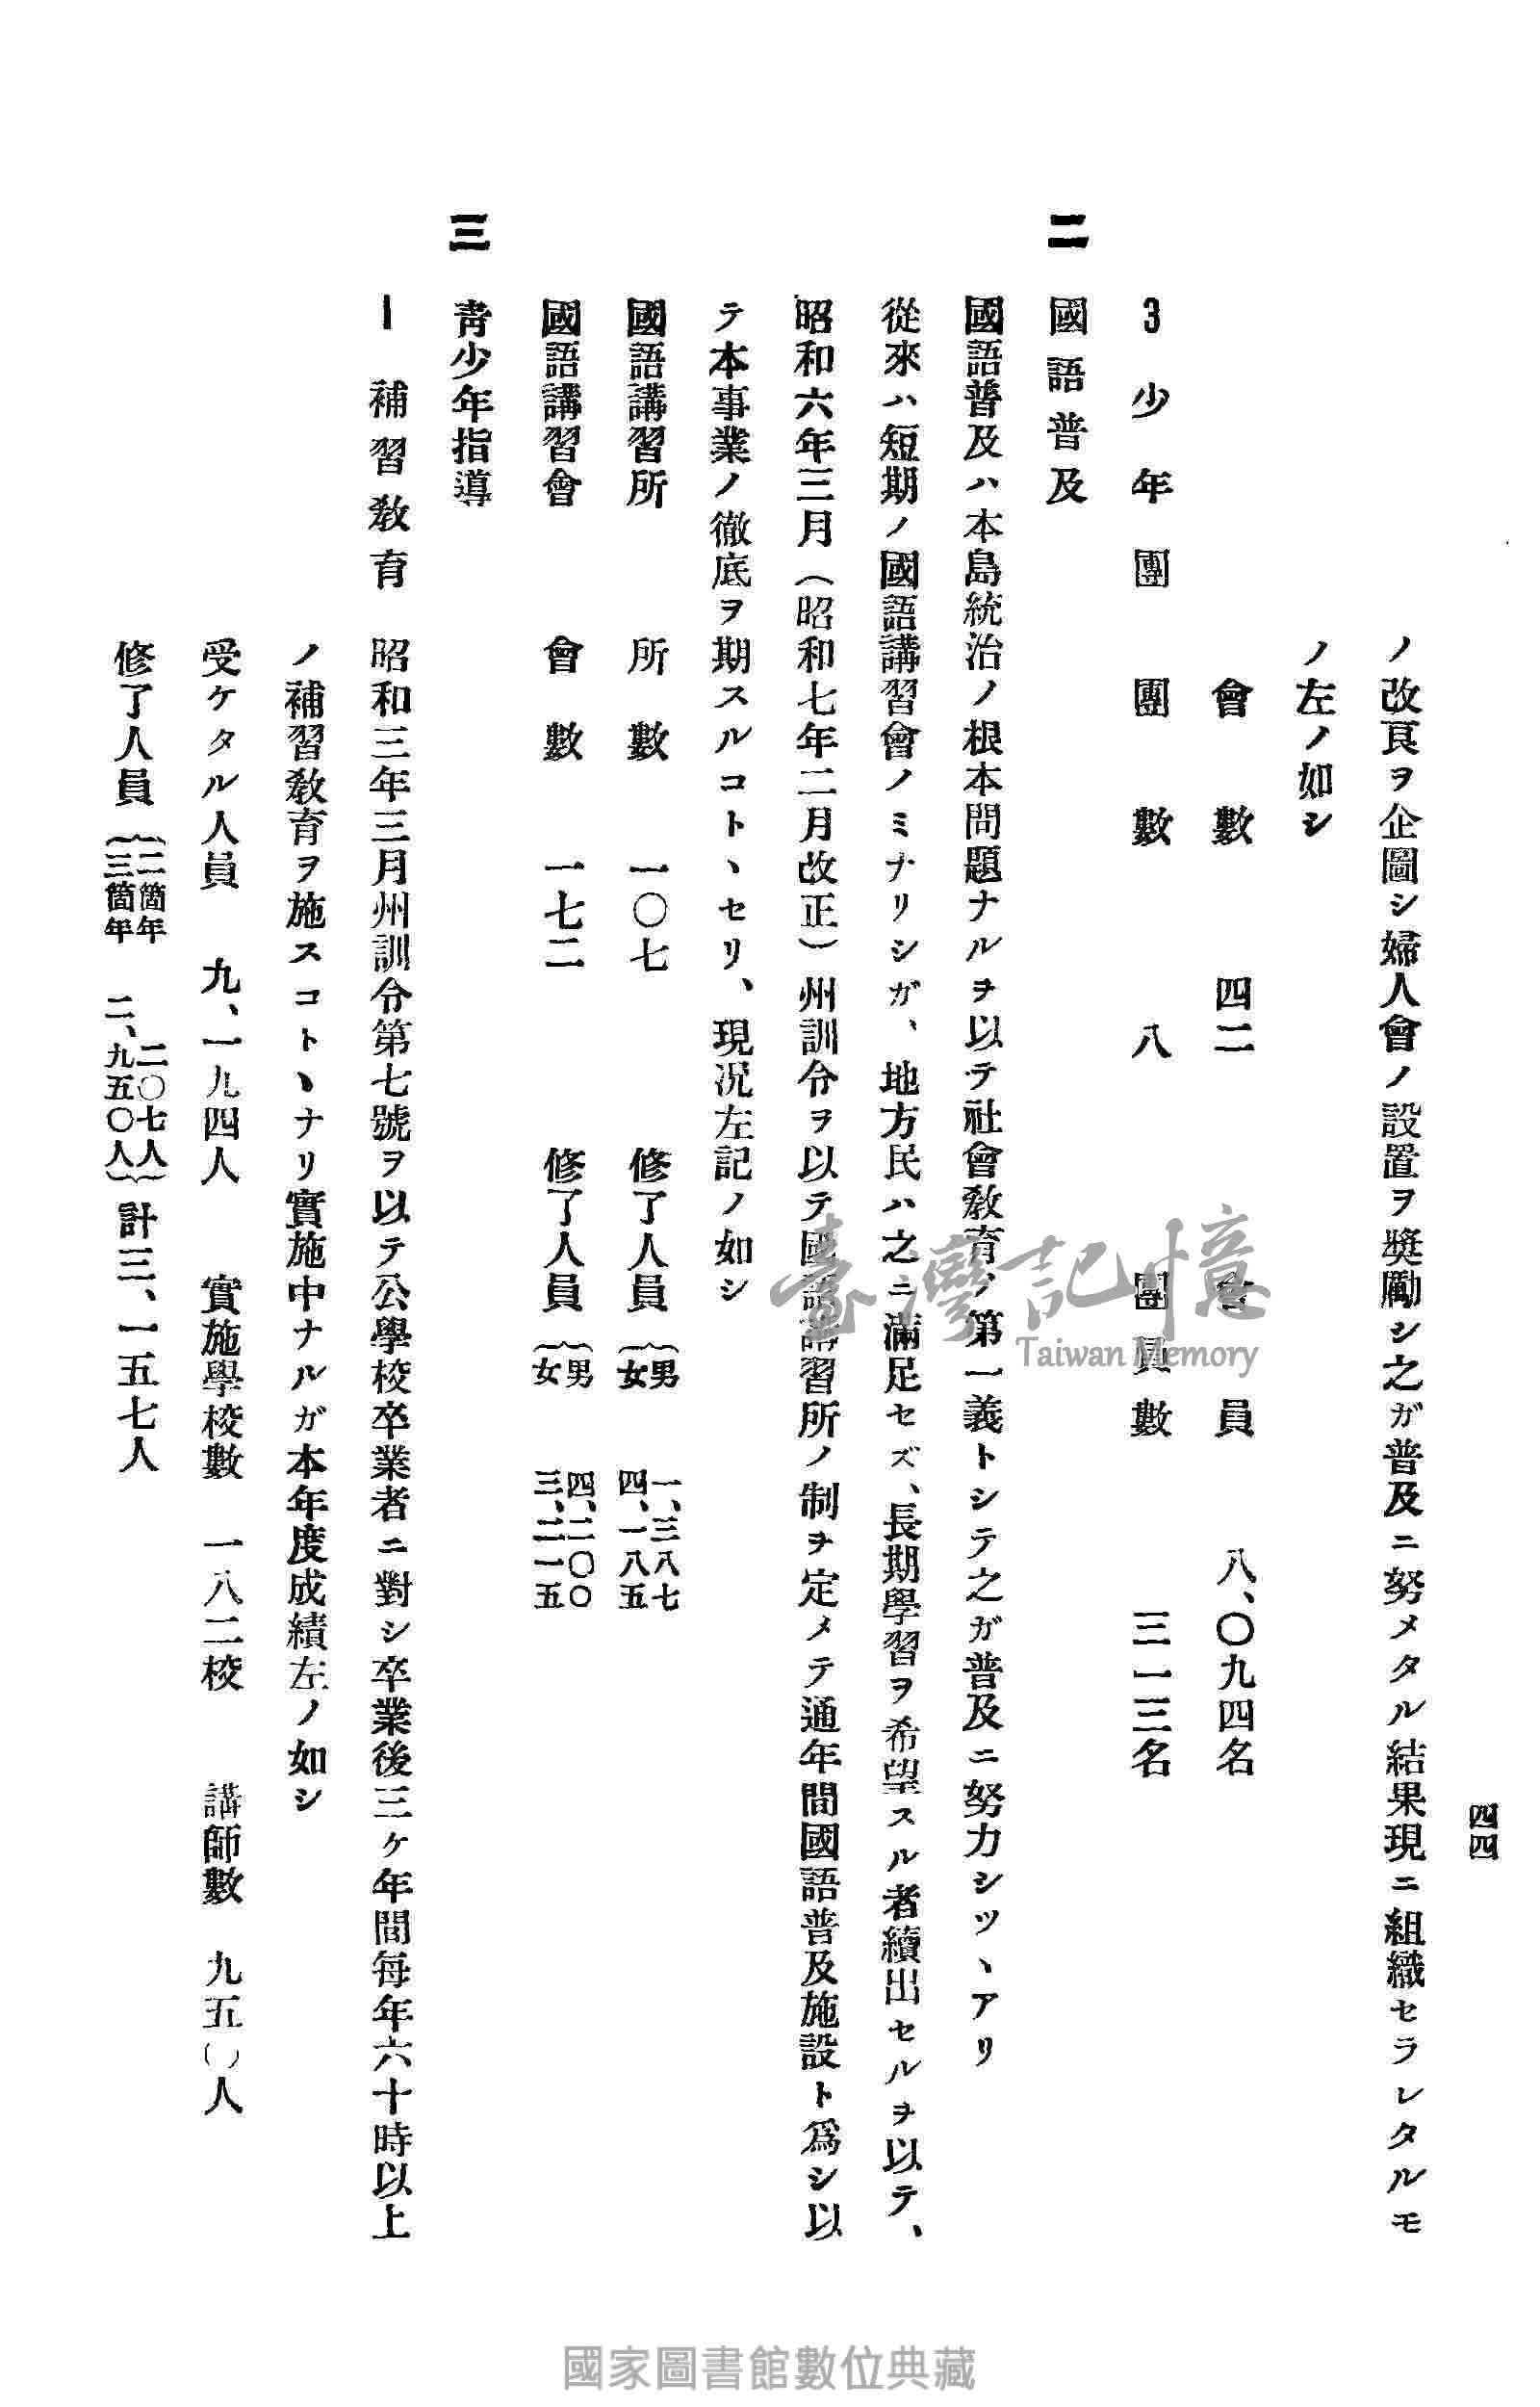 四四
ノ改良ヲ企圖シ婦人會ノ設置ヲ獎勵シ之ガ普及ニ努メタル結果現ニ組織セラレタルモ
ノ左ノ如シ
會數 四二 會員 八、〇九四名
3 少年團 團數 八 團員數 三一三名
二 國語普及
國語普及ハ本島統治ノ根本問題ナルヲ以テ社會敎育ノ第一義トシテ之ガ普及ニ努力シツヽアリ
從來ハ短期ノ國語講習會ノミナリシガ、地方民ハ之ニ滿足セズ、長期學習ヲ希望スル者續出セルヲ以テ、
昭和六年三月（昭和七年二月改正）州訓令ヲ以テ國語講習所ノ制ヲ定メテ通年間國語普及施設ト爲シ以
テ本事業ノ徹底ヲ期スルコトヽセリ、現況左記ノ如シ
國語講習所 所數 一〇七 修了人員｛男 一、三八七
女 四、一八五
國語講習會 會數 一七二 修了人員｛男 四、二〇〇
女 三、二一五
三 靑少年指導
1 補習敎育 昭和三年三月州訓令第七號ヲ以テ公學校卒業者ニ對シ卒業後三ケ年間每年六十時以上
ノ補習敎育ヲ施スコトヽナリ實施中ナルガ本年度成績左ノ如シ
受ケタル人員 九、一九四人 實施學校數 一八二校 講師數 九五〇人
修了人員｛二箇年 二〇七人
三箇年 二、九五〇人｝計三、一五七人
臺灣記憶
Taiwan Memory
國家圖書館數位典藏